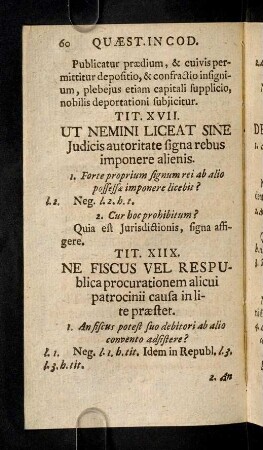 60 QUÆST. IN COD.
Publicatur prædium, & cuivis per-
mittitur depositio, & confractio insigni-
um, plebejus etiam capitali supplicio,
nobilis deportationi subjicitur.
TIT. XVII.
UT NEMINI LICEAT SINE
Judicis autoritate signa rebus
imponere alienis.
1. Forte proprium signum rei ab alio
possessæ imponere licebit?
l.2. Neg. l.2.h.t.
2. Cur hoc prohibitum?
Quia est Jurisdictionis, signa affi-
gere.
TIT. XIIX.
NE FISCUS VEL RESPU-
blica procurationem alicui
patrocinii causa in li-
te præstet.
1. An fiscus potest suo debitori ab alio
convento adsistere?
l.1. Neg. l.1.h.tit. Idem in Republ. l.3.
l.3.h.tit.
2. An